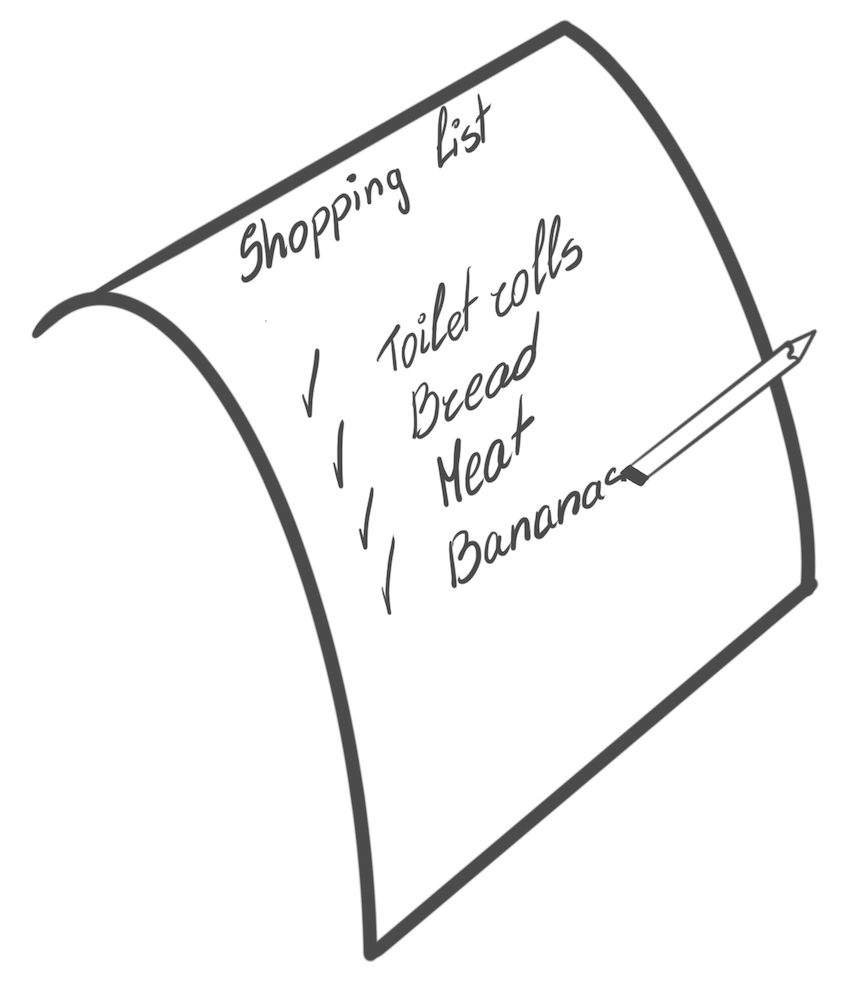 Shopping list
Toilet rolls
Bread
Meat
Bananas